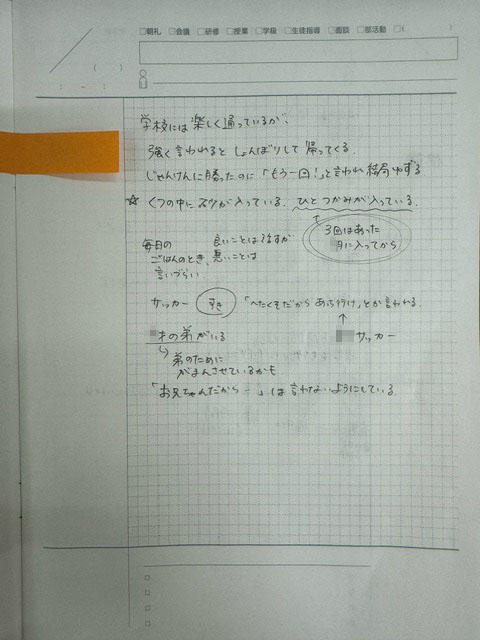 □朝礼 □会議 □研修 □授業 □学級 □生徒指導 □面談 □部活動 □( )
( )
: - :
学校には楽しく通っているが、
強く言われるとしょんぼりして帰ってくる.
じゃんけんに勝ったのに「もう一回!」と言われ結局ゆずる
☆ くつの中に 砂が入っている. ひとつかみが入っている.
3回はあった
月に入ってから
毎日の 良いことは話すが
ごはんのとき、悪いことは
言いづらい
サッカー すき 「へたくそだからあっち行け」とか言われる.
才の弟がいる サッカー
弟のために
がまんさせているかも
「お兄ちゃんだから…」は言わないようにしている